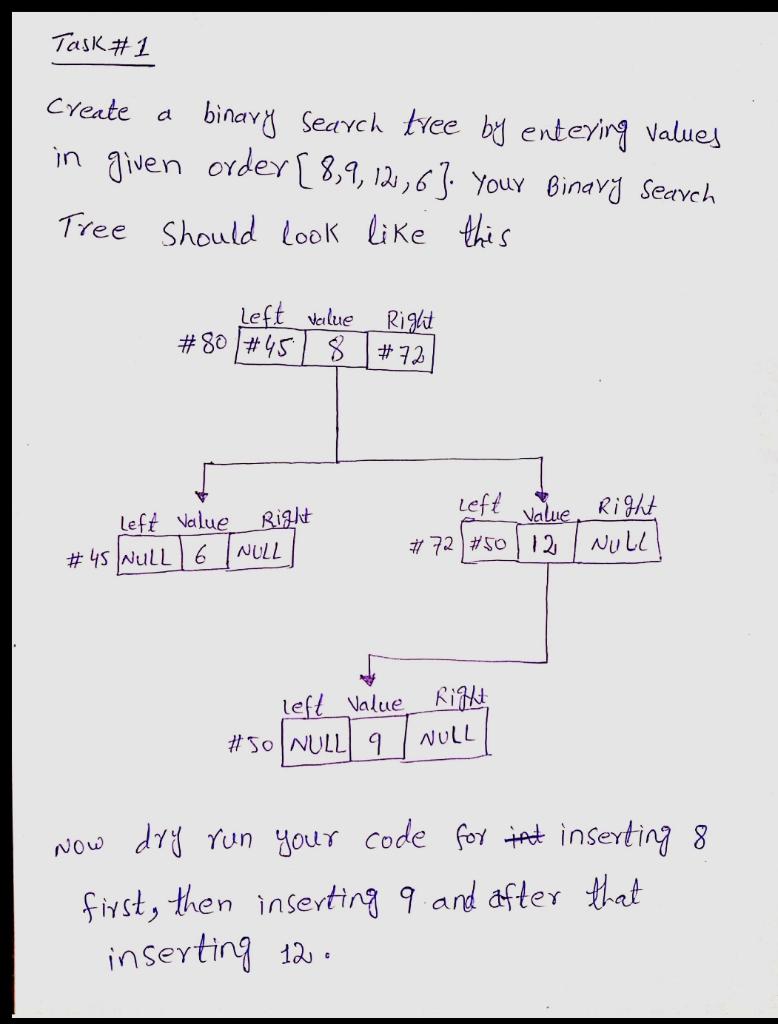 Task #1
Create a binary search tree by entering values
in given order [8,9,12,6]. Your Binary Search
Tree Should look like this
Left Value Right
#80 #45 8 #72
Left Value Right
#45 NULL 6 NULL
Left Value Right
#72 #50 12 NULL
Left Value Right
#50 NULL 9 NULL
Now dry run your code for int inserting 8
first, then inserting 9 and after that
inserting 12.